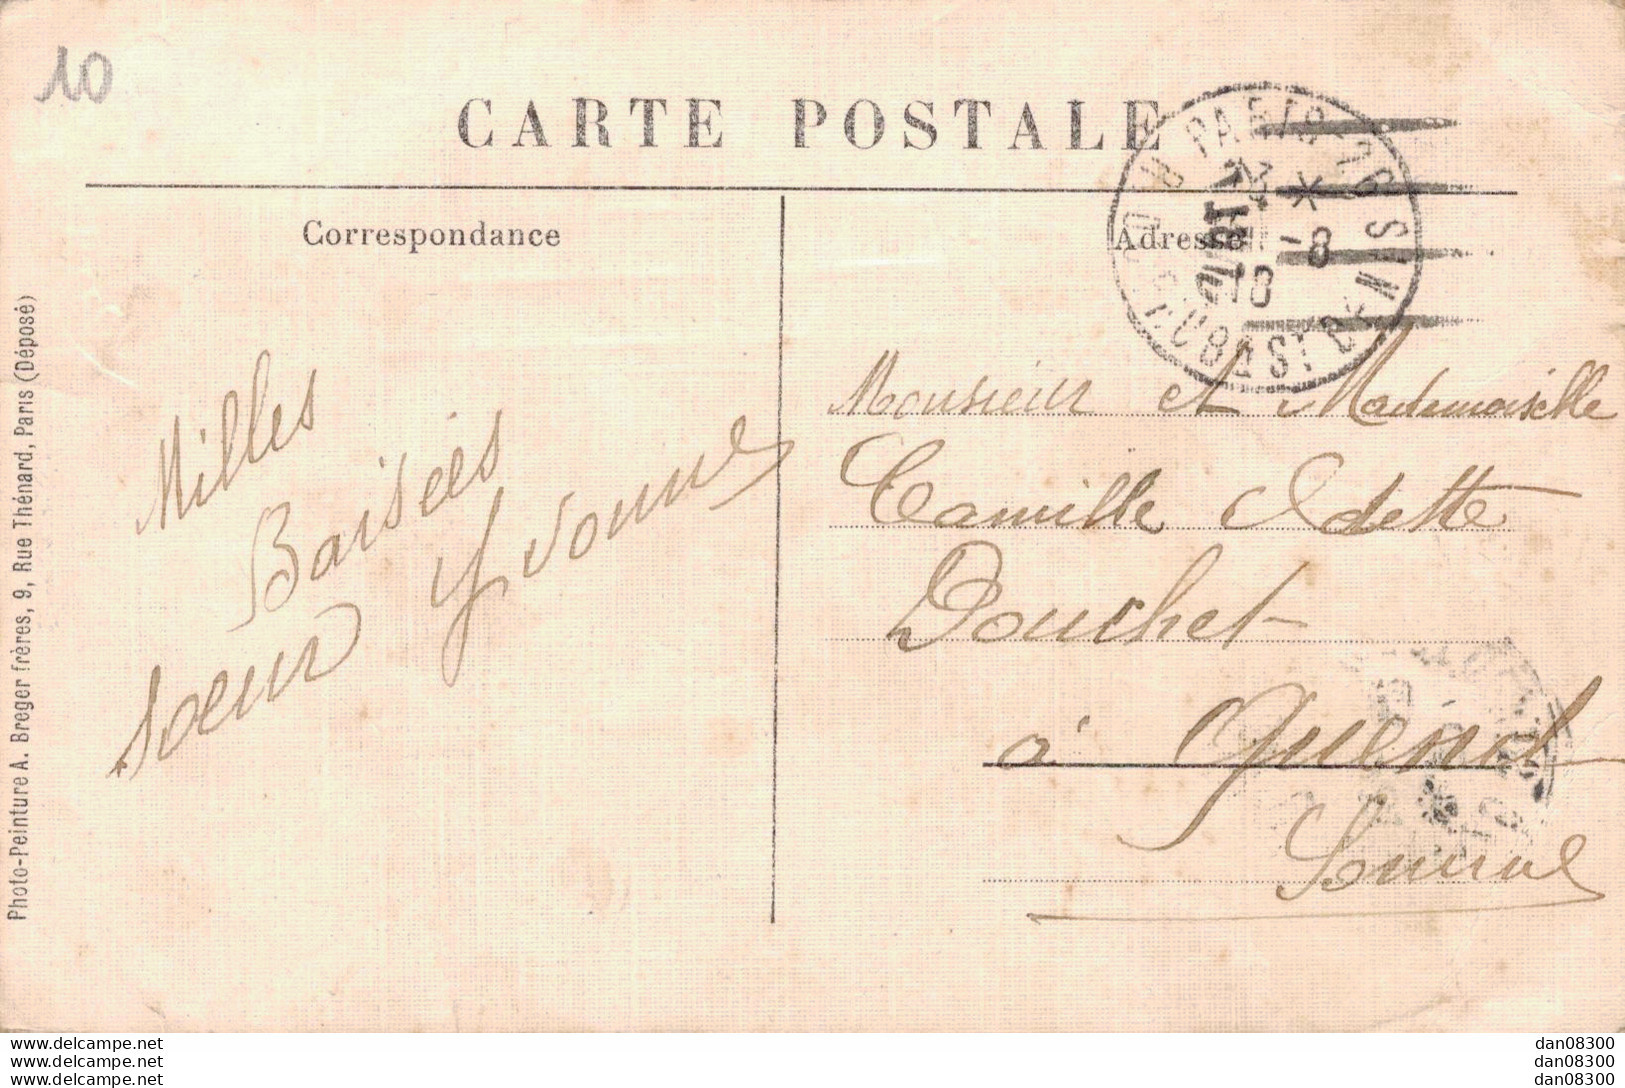 10
CARTE POSTALE
Correspondance
Adresse
PARIS
-8
18
Milles
Baisées
Soeur Yvonne
Monsieur et Mademoiselle
Camille Odette
Douchet
à Quend
Somme
Photo-Peinture A. Breger frères, 9, Rue Thénard, Paris (Déposé)
www.delcampe.net
www.delcampe.net
www.delcampe.net
dan08300
dan08300
dan08300